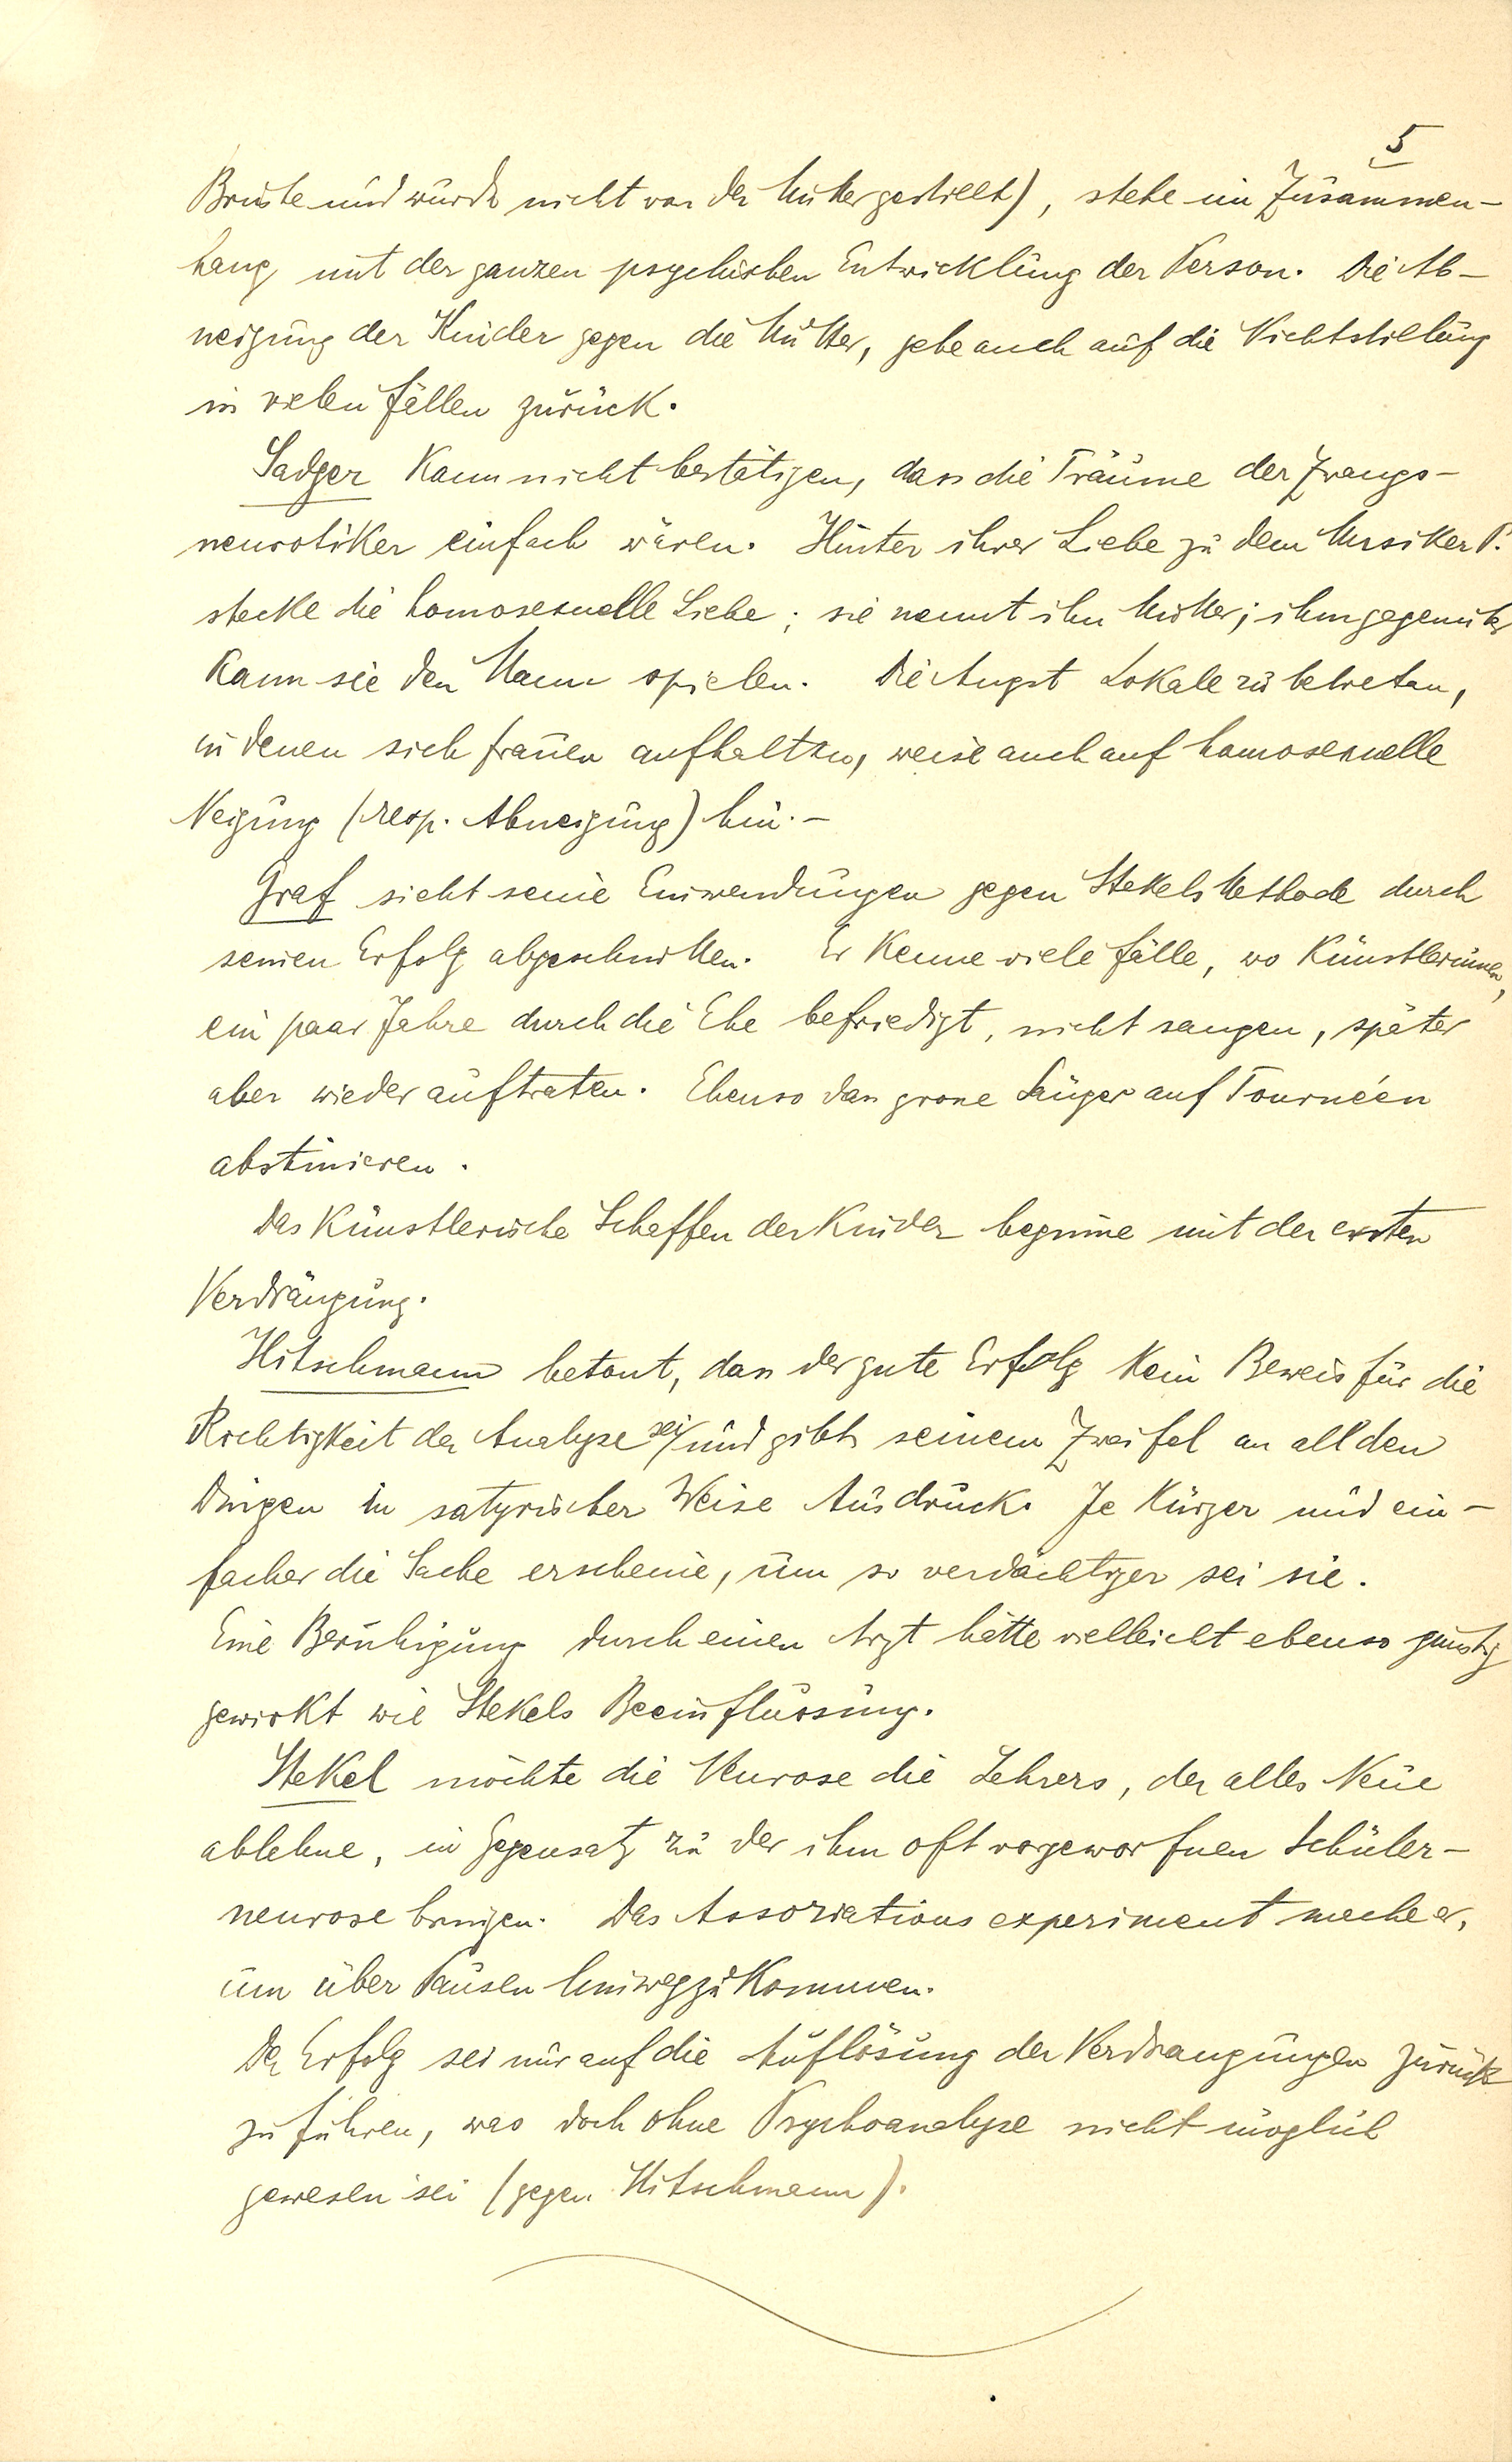 5
Brüste und wurde nicht von der Mutter gestillt), stehe im Zusammen-
hang mit der ganzen psychischen Entwicklung der Person. Die Ab-
neigung der Kinder gegen die Mutter, gehe auch auf die Nichtstillung
in vielen Fällen zurück.
Sadger kann nicht bestätigen, dass die Träume der Zwangs-
neurotiker einfach wären. Hinter ihrer Liebe zu dem Musiker P.
stecke die homosexuelle Liebe; sie nennt ihn Mutter; ihm gegenüber
kann sie den Mann spielen. Die Angst Lokale zu betreten,
in denen sich Frauen aufhalten, weise auch auf homosexuelle
Neigung (resp. Abneigung) hin.-
Graf sieht seine Einwendungen gegen Stekels Methode durch
seinen Erfolg abgeschnitten. Er kenne viele Fälle, wo Künstlerinnen,
ein paar Jahre durch die Ehe befriedigt, nicht sangen, später
aber wieder auftraten. Ebenso dass grosse Sänger auf Tournéen
abstinieren.
Das künstlerische Schaffen der Kinder beginne mit der ersten
Verdrängung.
Hitschmann betont, dass der gute Erfolg kein Beweis für die
Richtigkeit der Analyse sei und gibt seinem Zweifel an all den
Dingen in satyrischer Weise Ausdruck. Je kürzer und ein-
facher die Sache erscheine, um so verdächtiger sei sie.
Eine Beruhigung durch einen Arzt hätte vielleicht ebenso günstig
gewirkt wie Stekels Beeinflussung.
Stekel möchte die Neurose die Lehrers, der alles Neue
ablehne, in Gegensatz zu der ihm oft vorgeworfnen Schüler-
neurose bringen. Das Assoziationsexperiment mache er,
um über Pausen hinwegzukommen.
Der Erfolg sei nur auf die Auflösung der Verdrangungen zurück
zu führen, was doch ohne Psychoanalyse nicht möglich
gewesen sei (gegen Hitschmann).